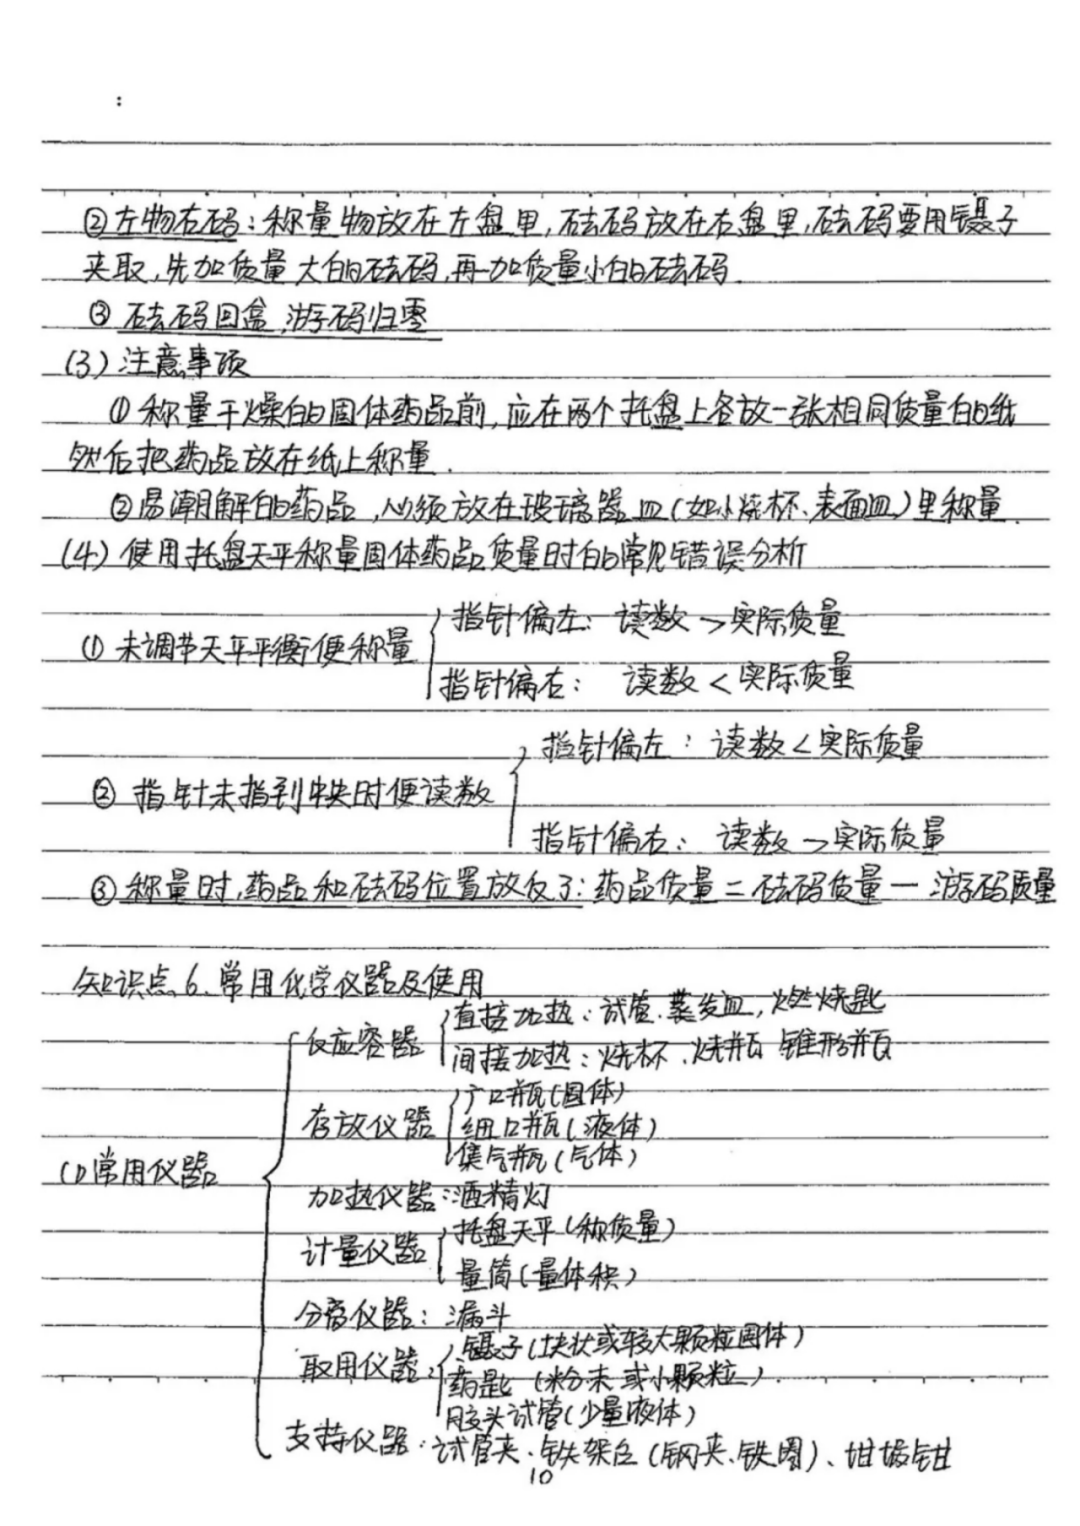 ②左物右码:称量物放在左盘里,砝码放在右盘里,砝码要用镊子
夹取,先加质量大的砝码,再加质量小的砝码.
③砝码回盒,游码归零
(3)注意事项
①称量干燥的固体药品前,应在两个托盘上各放一张相同质量的纸
然后把药品放在纸上称量.
②易潮解的药品,必须放在玻璃器皿(如小烧杯、表面皿)里称量.
(4)使用托盘天平称量固体药品质量时的常见错误分析
指针偏左:读数>实际质量
①未调节天平平衡便称量
指针偏右:读数<实际质量
指针偏左:读数<实际质量
②指针未指到中央时便读数
指针偏右:读数>实际质量
③称量时,药品和砝码位置放反了:药品质量=砝码质量-游码质量
知识点6、常用化学仪器及使用
直接加热:试管、蒸发皿,燃烧匙
反应容器
间接加热:烧杯、烧瓶 锥形瓶
广口瓶(固体)
存放仪器 细口瓶(液体)
集气瓶(气体)
(1)常用仪器
加热仪器:酒精灯
托盘天平(称质量)
计量仪器
量筒(量体积)
分离仪器:漏斗
镊子(块状或较大颗粒固体)
取用仪器: 药匙(粉末或小颗粒)
胶头试管(少量液体)
支持仪器:试管夹、铁架台(钢夹、铁圈)、坩埚钳
10